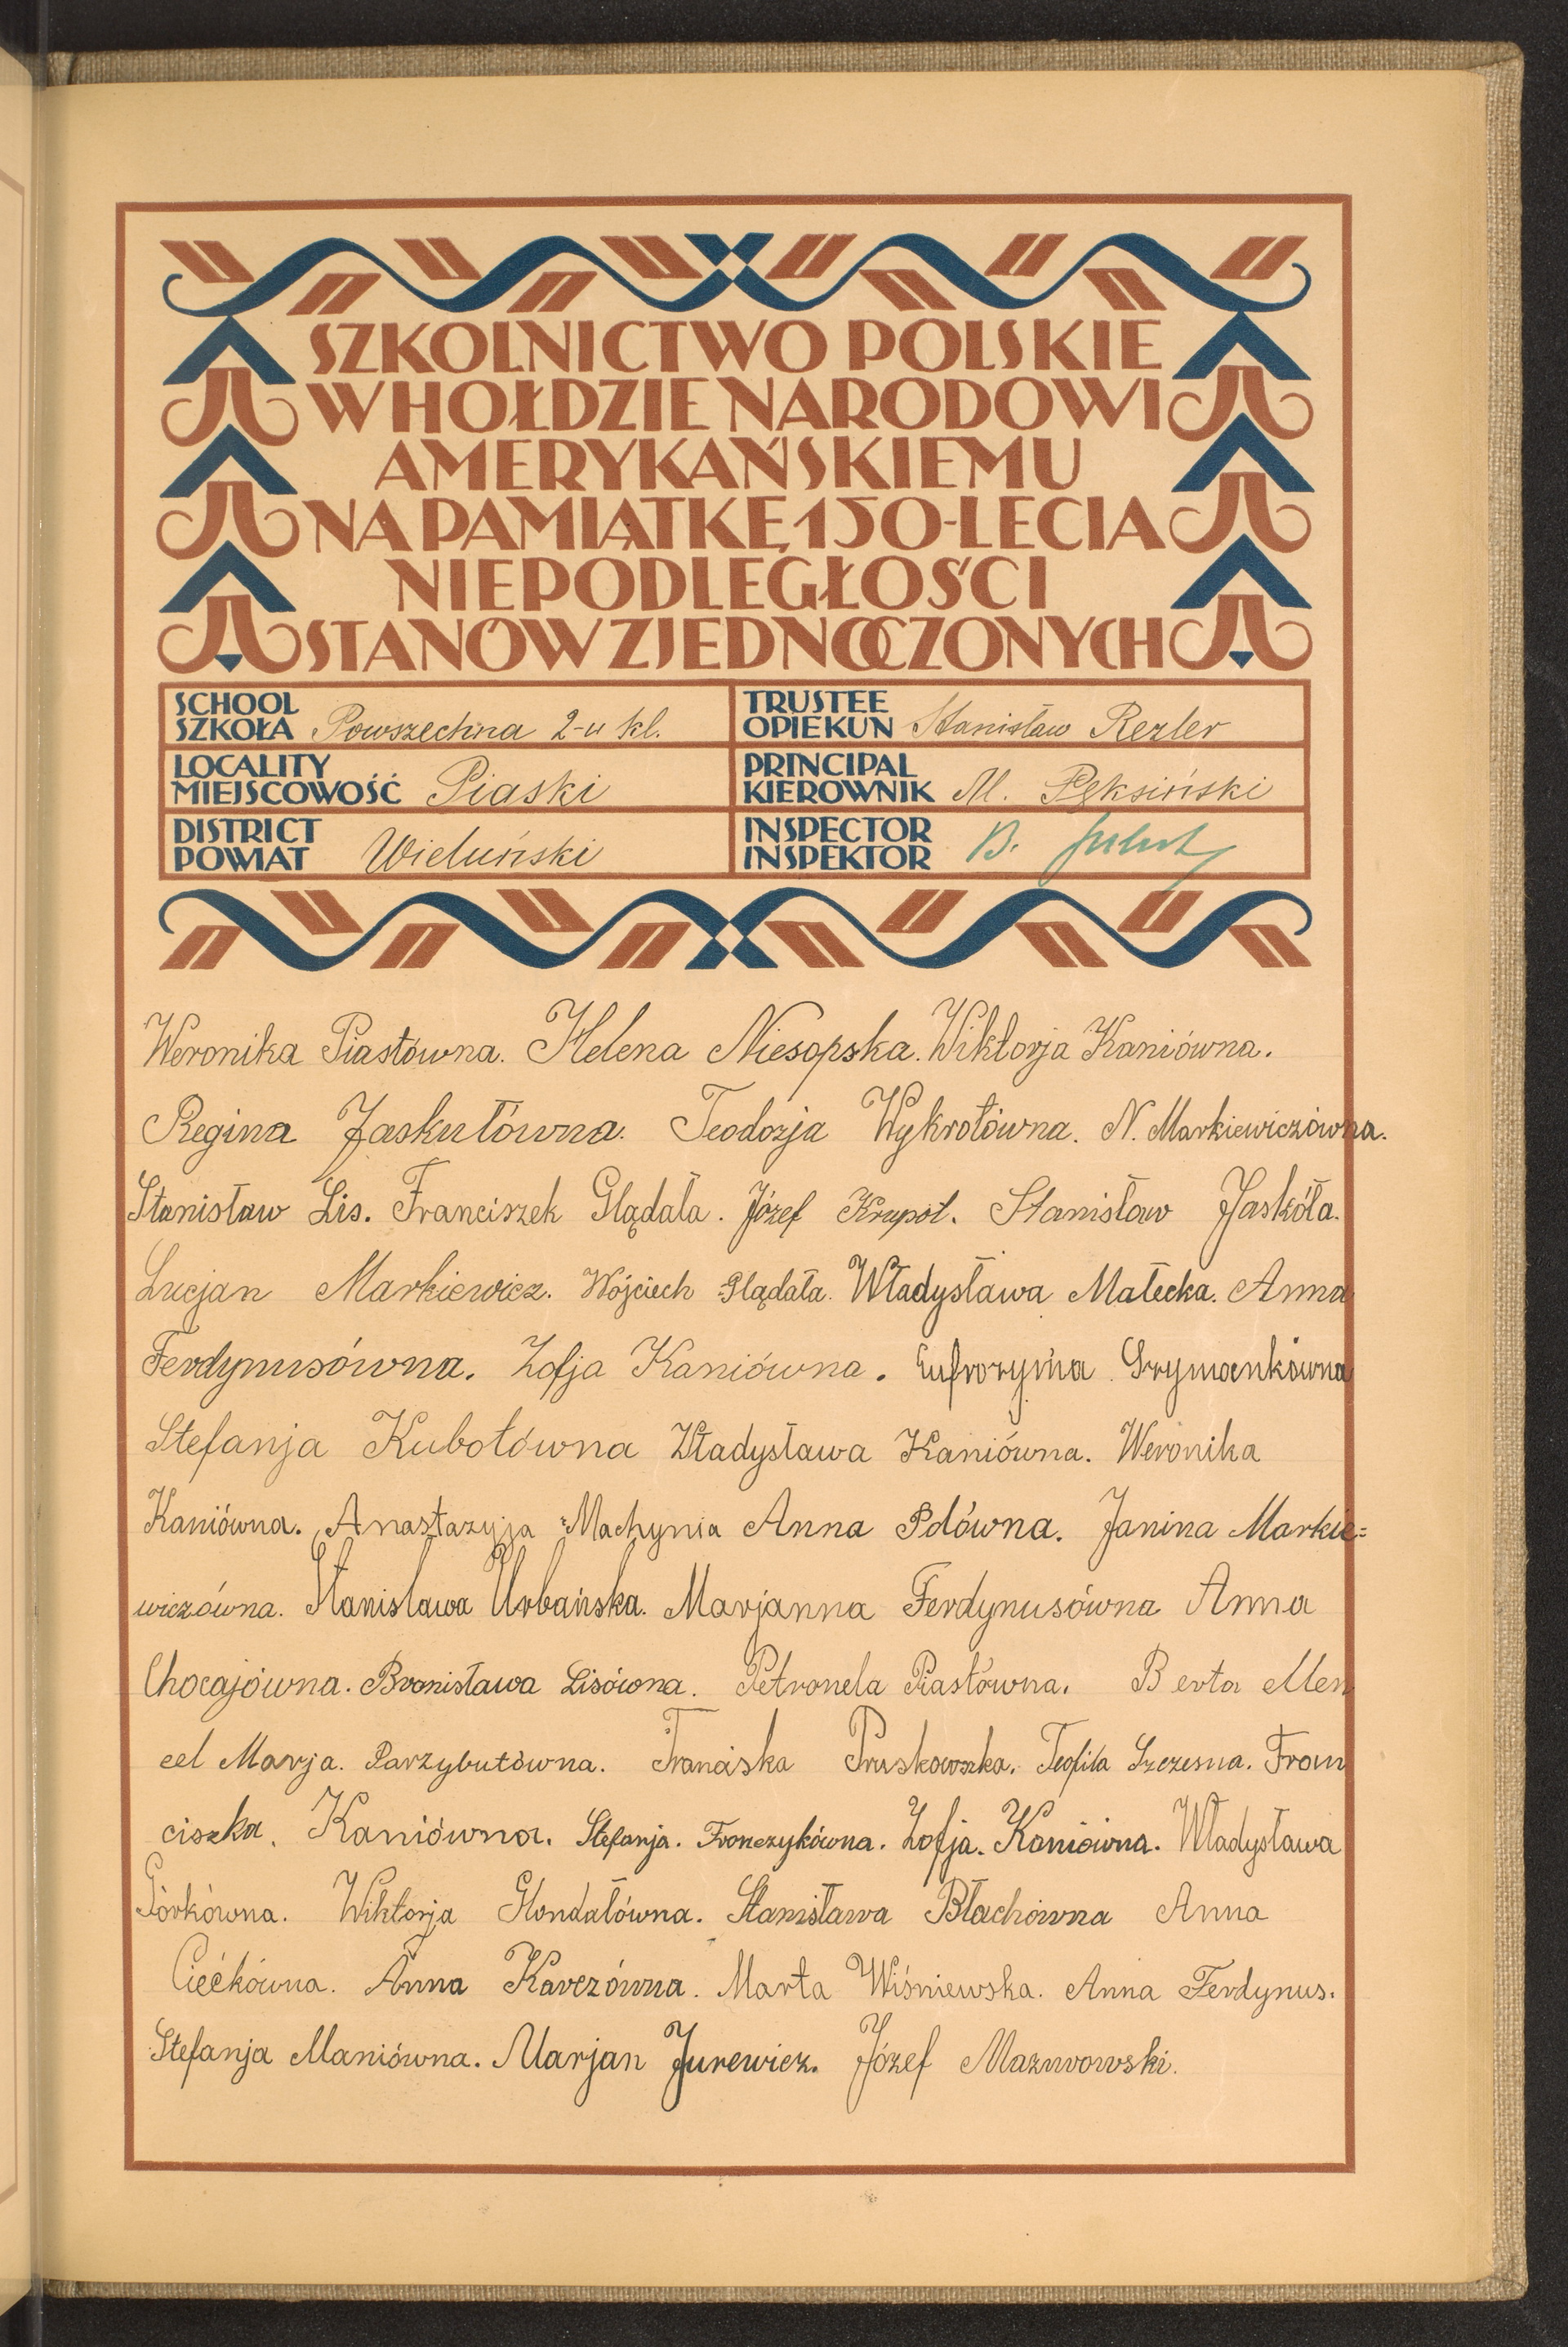 SZKOLNICTWO POLSKIE
W HOŁDZIE NARODOWI
AMERYKAŃSKIEMU
NA PAMIĄTKĘ 150-LECIA
NIEPODLEGŁOŚCI
STANÓW ZJEDNOCZONYCH
SCHOOL
SZKOŁA Powszechna 2-u kl.
TRUSTEE
OPIEKUN Stanisław Rezler
LOCALITY
MIEJSCOWOŚĆ Piaski
PRINCIPAL
KIEROWNIK M. Pęksiński
DISTRICT
POWIAT Wieluński
INSPECTOR
INSPEKTOR B.
Weronika Piastówna. Helena Niesopska. Wiktorja Kaniówna.
Regina Jaskułówna. Teodozja Wykrotówna. N. Markiewiczówna.
Stanisław Lis. Franciszek Glądała. Józef Krupot. Stanisław Jaskóła.
Lucjan Markiewicz. Wojciech Glądała. Władysława Małecka. Anna
Ferdynusówna. Zofja Kaniówna. Eufrozyma Grymankówna
Stefanja Kubotówna Władysława Kaniówna. Weronika
Kaniówna. Anastazyja Machynia Anna Polówna. Janina Markie=
wiczówna. Stanisława Urbańska. Marjanna Ferdynusówna Anna
Chocajówna. Bronisława Lisówna. Petronela Piastówna. Berta Men
cel Marja. Parzybutówna. Franciska Pruskowska. Teofila Szczesna. Fran
ciszka. Kaniówna. Stefanja. Franczykówna. Zofja. Kaniówna. Władysława
Górkówna. Wiktorja Glondałówna. Stanisława Błachówna Anna
Ciećkówna. Anna Karczówna. Marta Wiśniewska. Anna Ferdynus.
Stefanja Maniówna. Marjan Jurewicz. Józef Mazurowski.